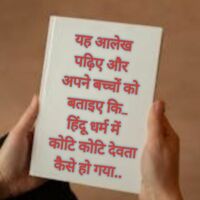 यह आलेख
पढ़िए और
अपने बच्चों को
बताइए कि_
हिंदू धर्म में
कोटि कोटि देवता
कैसे हो गया..